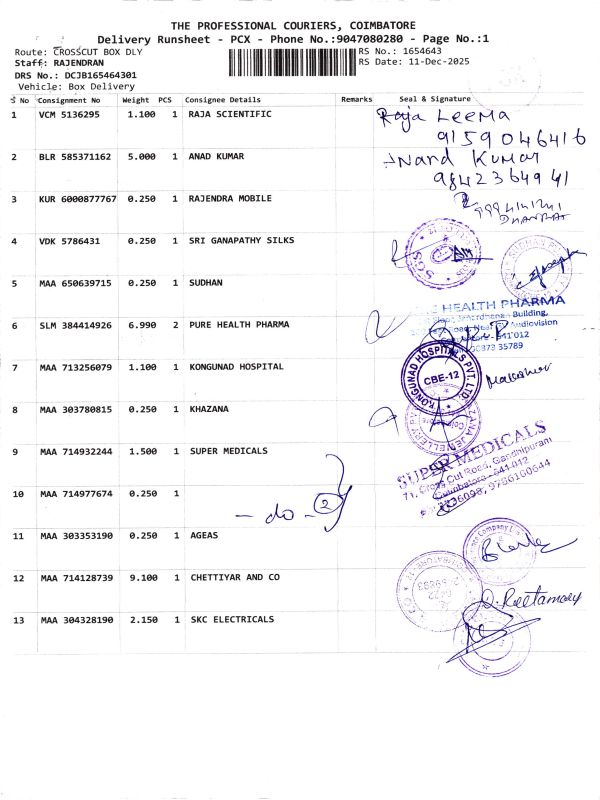 THE PROFESSIONAL COURIERS, COIMBATORE
Delivery Runsheet - PCX - Phone No.:9047080280 - Page No.:1
Route: CROSSCUT BOX DLY
RS No.: 1654643
Staff: RAJENDRAN
RS Date: 11-Dec-2025
DRS No.: DCJB165464301
Vehicle: Box Delivery
S No Consignment No Weight PCS Consignee Details Remarks Seal & Signature
1 VCM 5136295 1.100 1 RAJA SCIENTIFIC
Raja Leema
9159046416
2 BLR 585371162 5.000 1 ANAD KUMAR
Anand Kumar
9842364941
3 KUR 6000877767 0.250 1 RAJENDRA MOBILE
DHANRAJ
4 VDK 5786431 0.250 1 SRI GANAPATHY SILKS
SGS
5 MAA 650639715 0.250 1 SUDHAN
SUDHAN
6 SLM 384414926 6.990 2 PURE HEALTH PHARMA
HEALTH PHARMA
Building,
Road, Audiovision
641 012
35789
7 MAA 713256079 1.100 1 KONGUNAD HOSPITAL
KONGUNAD HOSPITALS PVT. LTD.
CBE-12
8 MAA 303780815 0.250 1 KHAZANA
KHAZANA JEWELLERY
9 MAA 714932244 1.500 1 SUPER MEDICALS
SUPER MEDICALS
71, Cross Cut Road, Gandhipuram
Coimbatore - 641-012
9786160644
10 MAA 714977674 0.250 1
- do - 2
11 MAA 303353190 0.250 1 AGEAS
12 MAA 714128739 9.100 1 CHETTIYAR AND CO
13 MAA 304328190 2.150 1 SKC ELECTRICALS